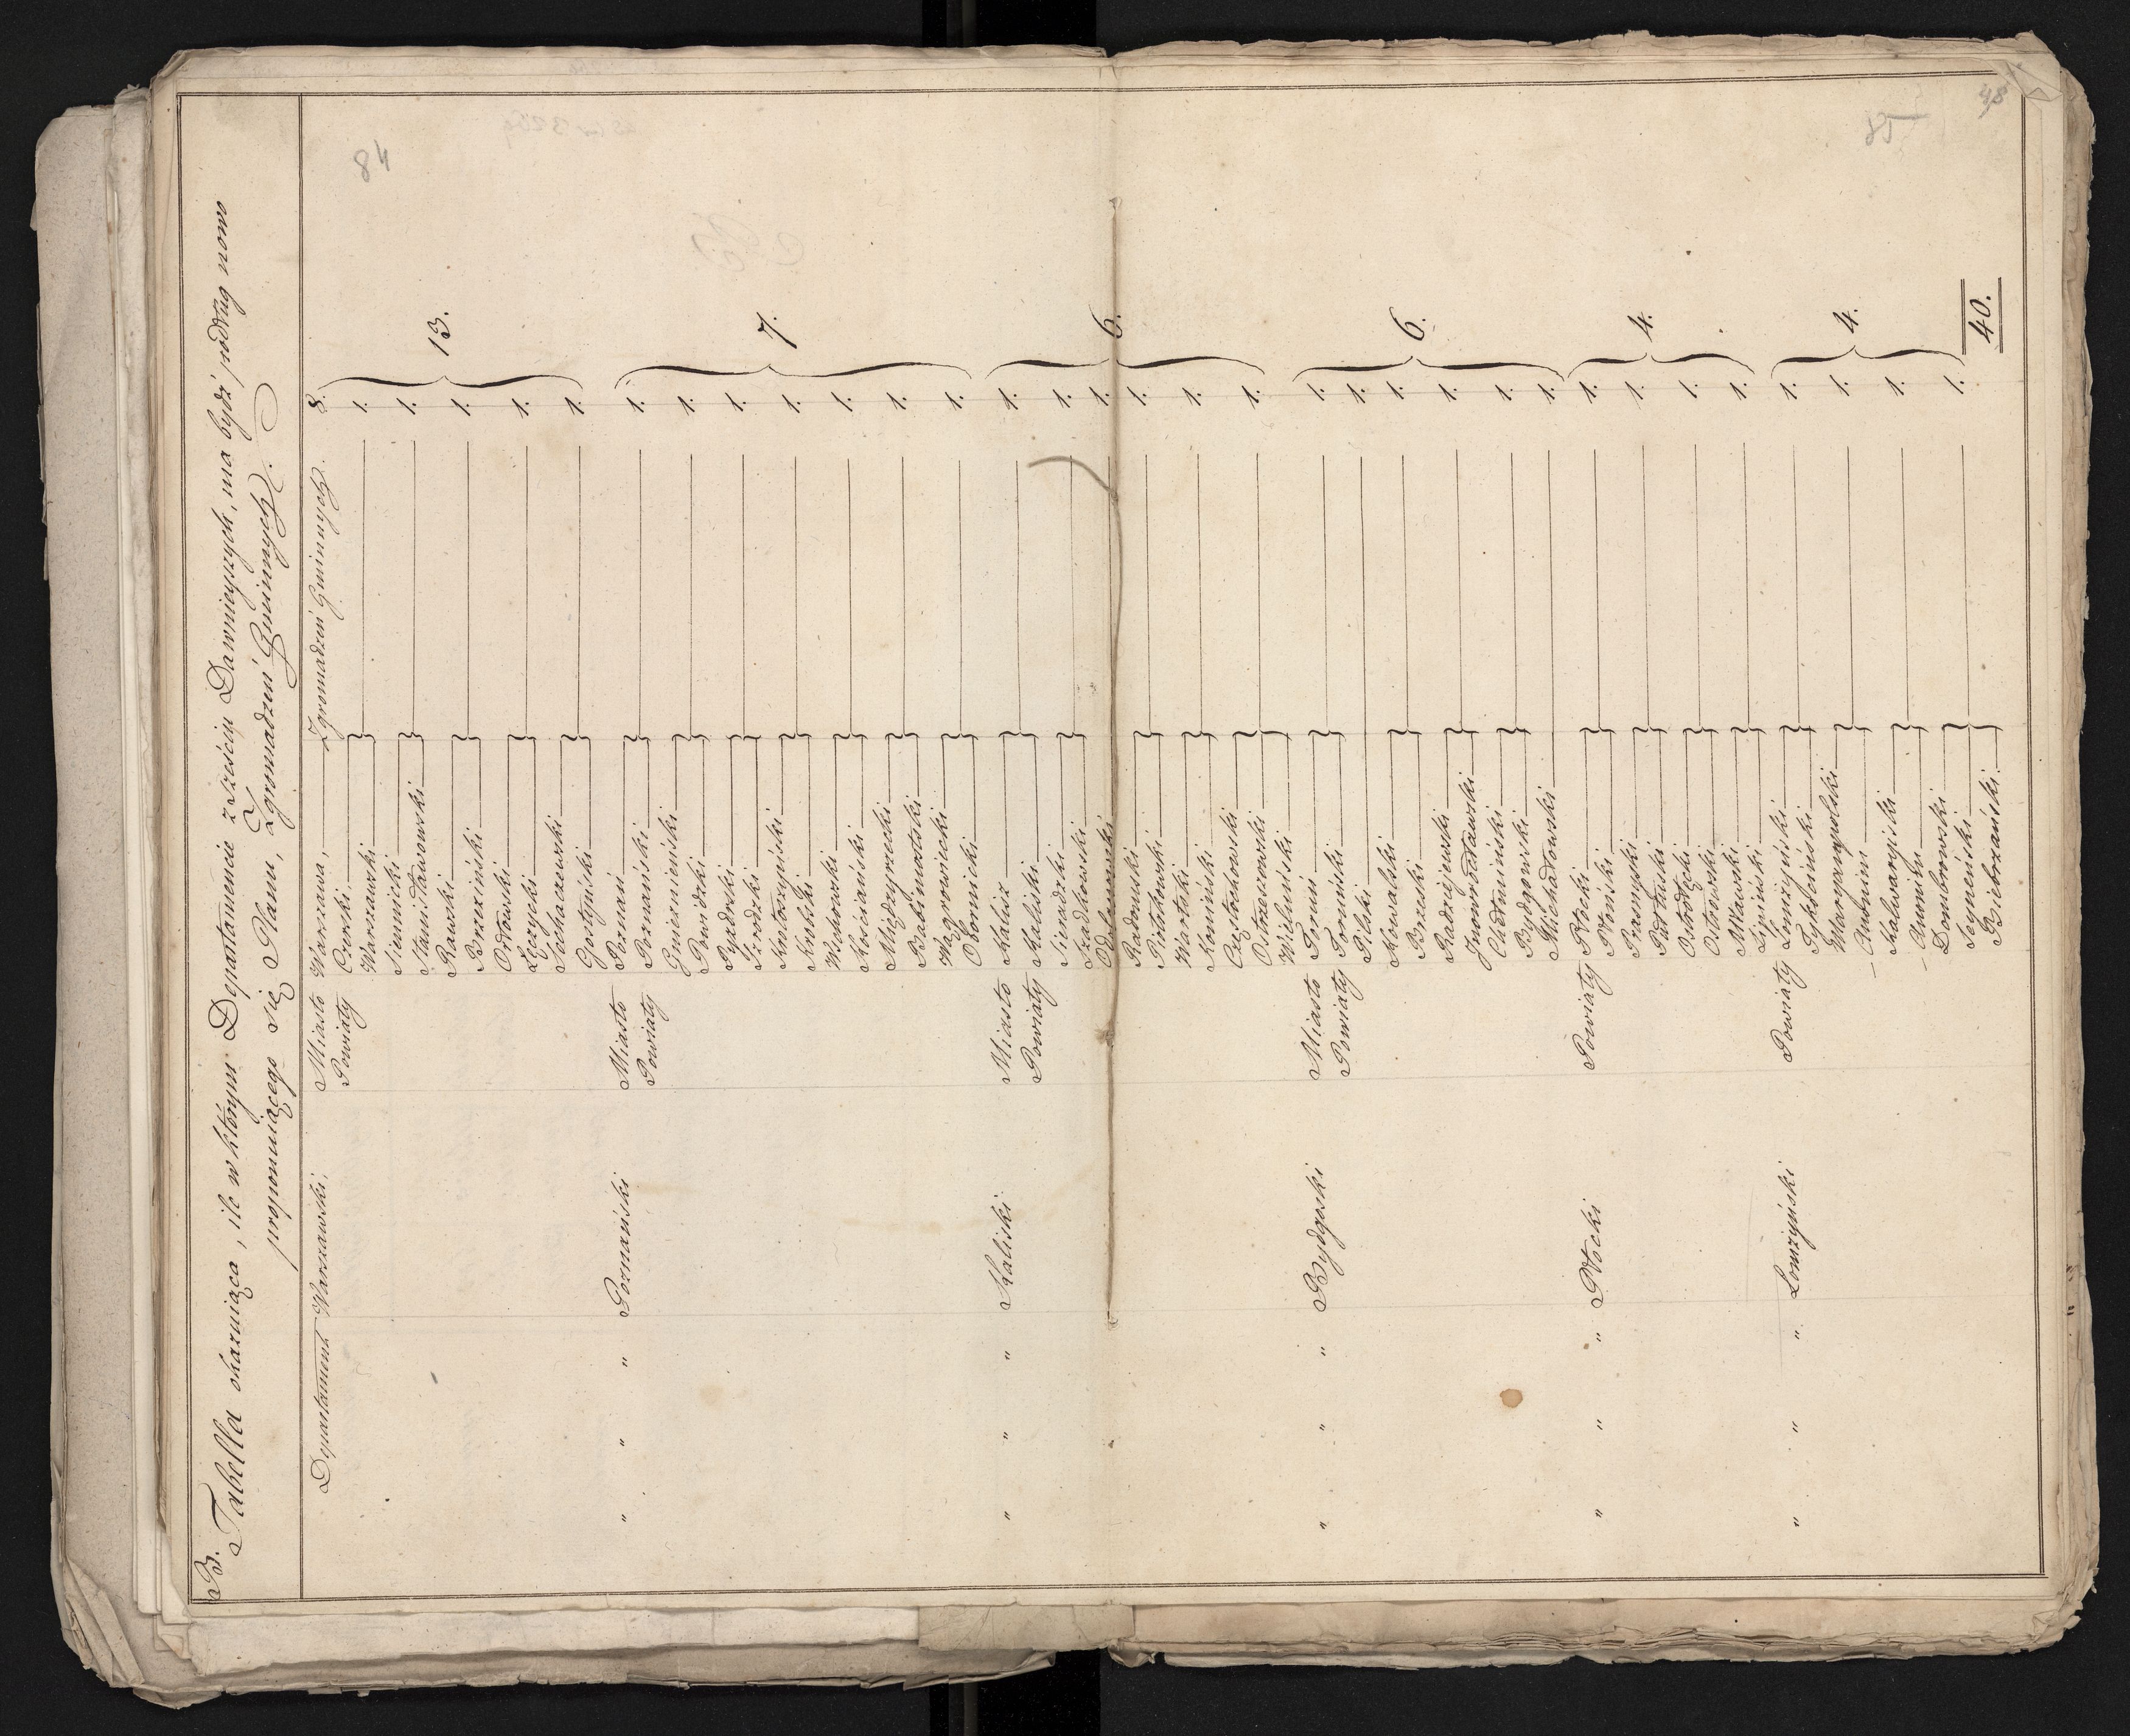 B.
Tabella okazuiąca, ile w którym Departamencie z sześciu Dawnieyszych, ma bydź podług nowo
proponuiącego się Planu, Zgromadzeń Gminnych.
Departament Warszawski, Miasto Warszawa, Zgromadzeń Gminnych. 8.
Powiaty Czerski,
Warszawski 1.
Siennicki
Stanisławowski 1.
Rawski
Brzeziński 1.
Orłowski
Łęczycki 1.
Sochaczewski
Gostyński 1.
13.
" " " Poznański Miasto Poznań
Powiaty Poznański 1.
Gnieznieński
Powidzki 1.
Pyzdrski
Szrodzki 1.
Krotoszyński
Krobski 1.
Wschowski
Kościański 1.
Międzyrzecki
Babimostski 1.
Wągrowiecki
Obornicki 1.
7.
" " " Kaliski Miasto Kalisz
Powiaty Kaliski 1.
Sieradzki
Szadkowski 1.
Odolanowski 1.
Radomski
Piotrkowski 1.
Wartski
Koniński 1.
Częstochowski
Ostrzeszowski
Wieluński 1.
6.
" " " Bydgoski Miasto Toruń
Powiaty Toruński 1.
Pilski 1.
Kowalski
Brzeski 1.
Radziejewski
Inowrocławski 1.
Chełmiński
Bydgowski 1.
Michałowski 1.
6.
" " " Płocki Powiaty Płocki
Płoński 1.
Przasnyski
Pułtuski 1.
Ostrołęcki
Ostrowski 1.
Mławski
Lipiński 1.
4.
" " " Łomżyński Powiaty Łomżyński
Tykociński 1.
Maryampolski
1.
Kalwaryiski
1.
Dombrowski
Seyneński
Biebrzański 1.
4.
40.
84
85
48